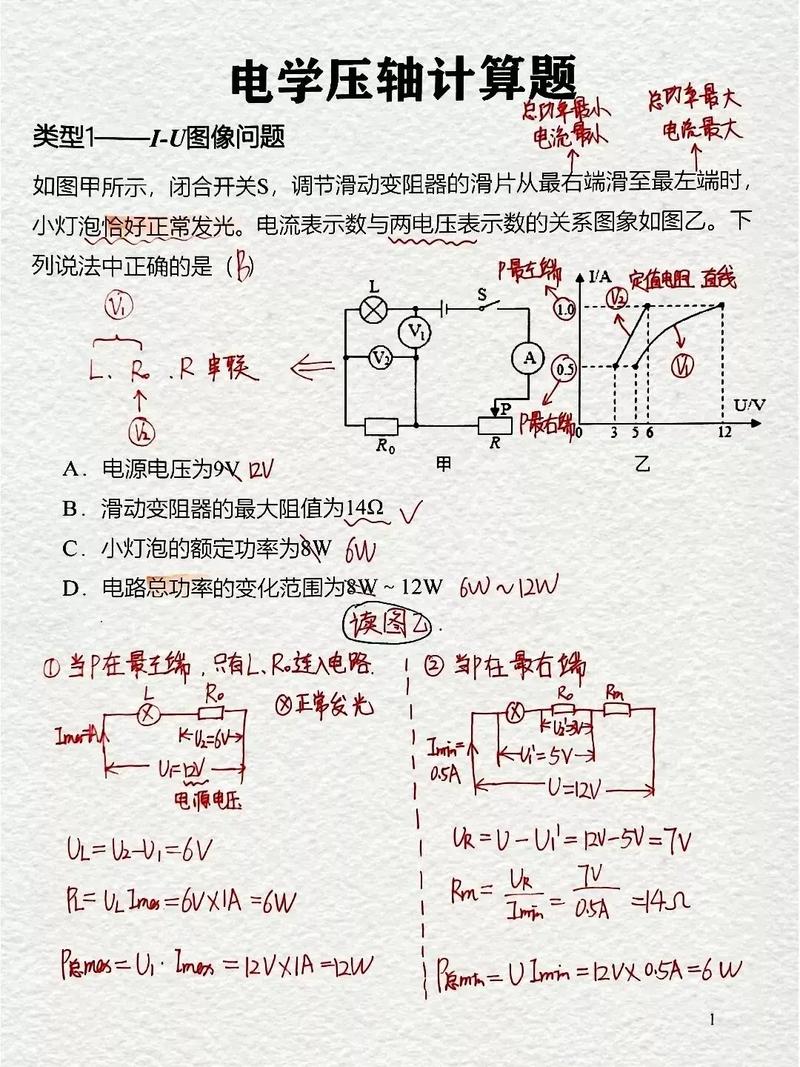 电学压轴计算题
总功率最小
电流最小
总功率最大
电流最大
类型1——I-U图像问题
如图甲所示，闭合开关S，调节滑动变阻器的滑片从最右端滑至最左端时，
小灯泡恰好正常发光。电流表示数与两电压表示数的关系图象如图乙。下
列说法中正确的是（B）
V₁
L、R₀、R 串联
V₂
L
V₁
V₂
S
A
R₀
R
P
甲
P最左端
P最右端
I/A
定值电阻 直线
1.0
0.5
V₂
V₁
0 3 5 6 12
U/V
乙
A．电源电压为9V 12V
B．滑动变阻器的最大阻值为14Ω √
C．小灯泡的额定功率为8W 6W
D．电路总功率的变化范围为8W ~ 12W 6W ~ 12W
读图乙.
① 当P在最左端，只有L、R₀连入电路.
L R₀
⊗正常发光
Imax=1A
U₂=6V
U₁=12V
电源电压
UL=U₂-U₁=6V
PL=UL Imax=6V×1A=6W
P总max=U₁·Imax=12V×1A=12W
② 当P在最右端
R₀ Rm
Imin=
0.5A
U₂'=3V
U₁'=5V
U=12V
UR=U-U₁'=12V-5V=7V
Rm=UR/Imin=7V/0.5A=14Ω
P总min=U Imin=12V×0.5A=6W
1